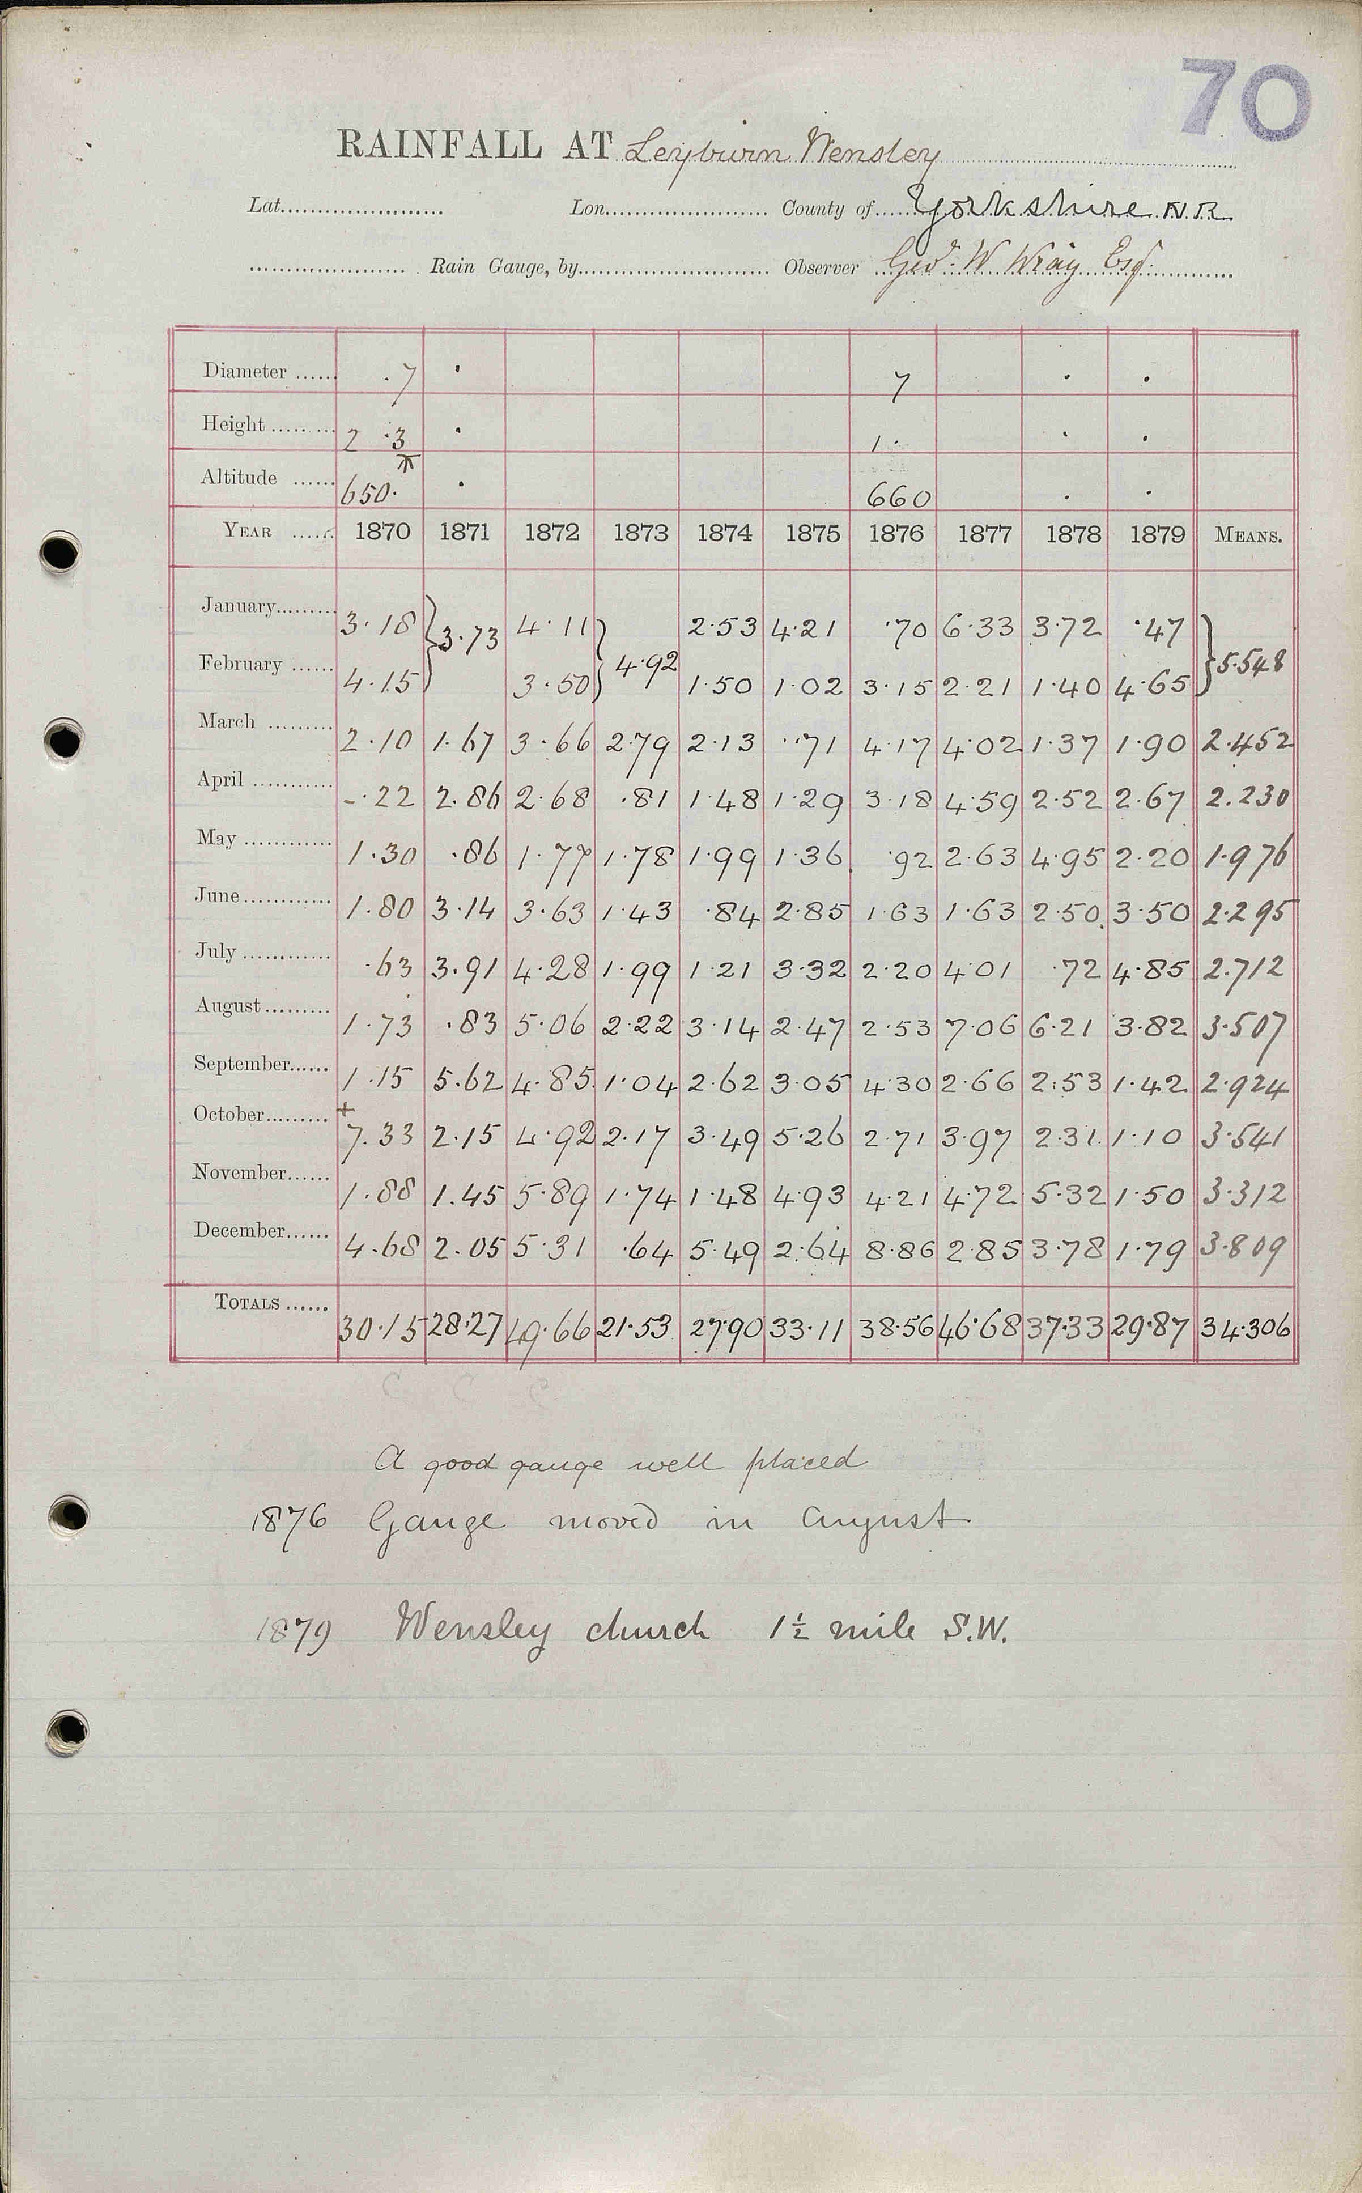 70
RAINFALL AT Leyburn Wensley
Lat. Lon. County of Yorkshire N.R.
Rain Gauge, by Observer Geo. W Wray Esq.
Diameter 7 · 7 · ·
Height 2 ·3 · 1· · ·
Altitude 650· · 660 · ·
YEAR 1870 1871 1872 1873 1874 1875 1876 1877 1878 1879 MEANS.
January 3·18 } 3·73 4·11 } 4·92 2·53 4·21 ·70 6·33 3·72 ·47 } 5·548
February 4·15 3·50 1·50 1·02 3·15 2·21 1·40 4·65
March 2·10 1·67 3·66 2·79 2·13 ·71 4·17 4·02 1·37 1·90 2·452
April -·22 2·86 2·68 ·81 1·48 1·29 3·18 4·59 2·52 2·67 2·230
May 1·30 ·86 1·77 1·78 1·99 1·36 ·92 2·63 4·95 2·20 1·976
June 1·80 3·14 3·63 1·43 ·84 2·85 1·63 1·63 2·50 3·50 2·295
July ·63 3·91 4·28 1·99 1·21 3·32 2·20 4·01 ·72 4·85 2·712
August 1·73 ·83 5·06 2·22 3·14 2·47 2·53 7·06 6·21 3·82 3·507
September 1·15 5·62 4·85 1·04 2·62 3·05 4·30 2·66 2·53 1·42 2·924
October + 7·33 2·15 4·92 2·17 3·49 5·26 2·71 3·97 2·31 1·10 3·541
November 1·88 1·45 5·89 1·74 1·48 4·93 4·21 4·72 5·32 1·50 3·312
December 4·68 2·05 5·31 ·64 5·49 2·64 8·86 2·85 3·78 1·79 3·809
TOTALS 30·15 28·27 49·66 21·53 27·90 33·11 38·56 46·68 37·33 29·87 34·306
C C C
A good gauge well placed
1876 Gauge moved in August
1879 Wensley church 1½ mile S.W.